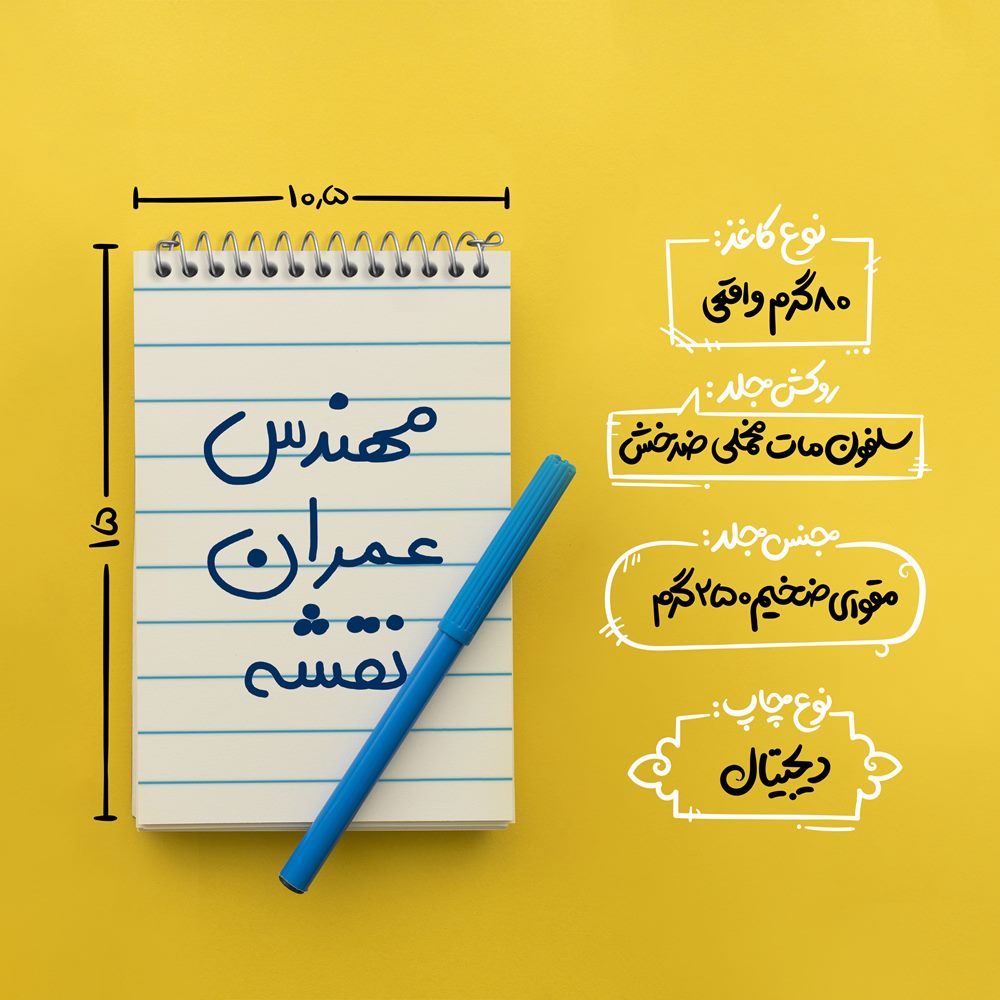 ۱۰٫۵
۱۵
مهندس
عمران
نقشه
نوع کاغذ:
۸۰گرم واقعی
روکش جلد:
سلفون مات مخملی ضدخش
جنس جلد:
مقوای ضخیم ۲۵۰گرم
نوع چاپ:
دیجیتال